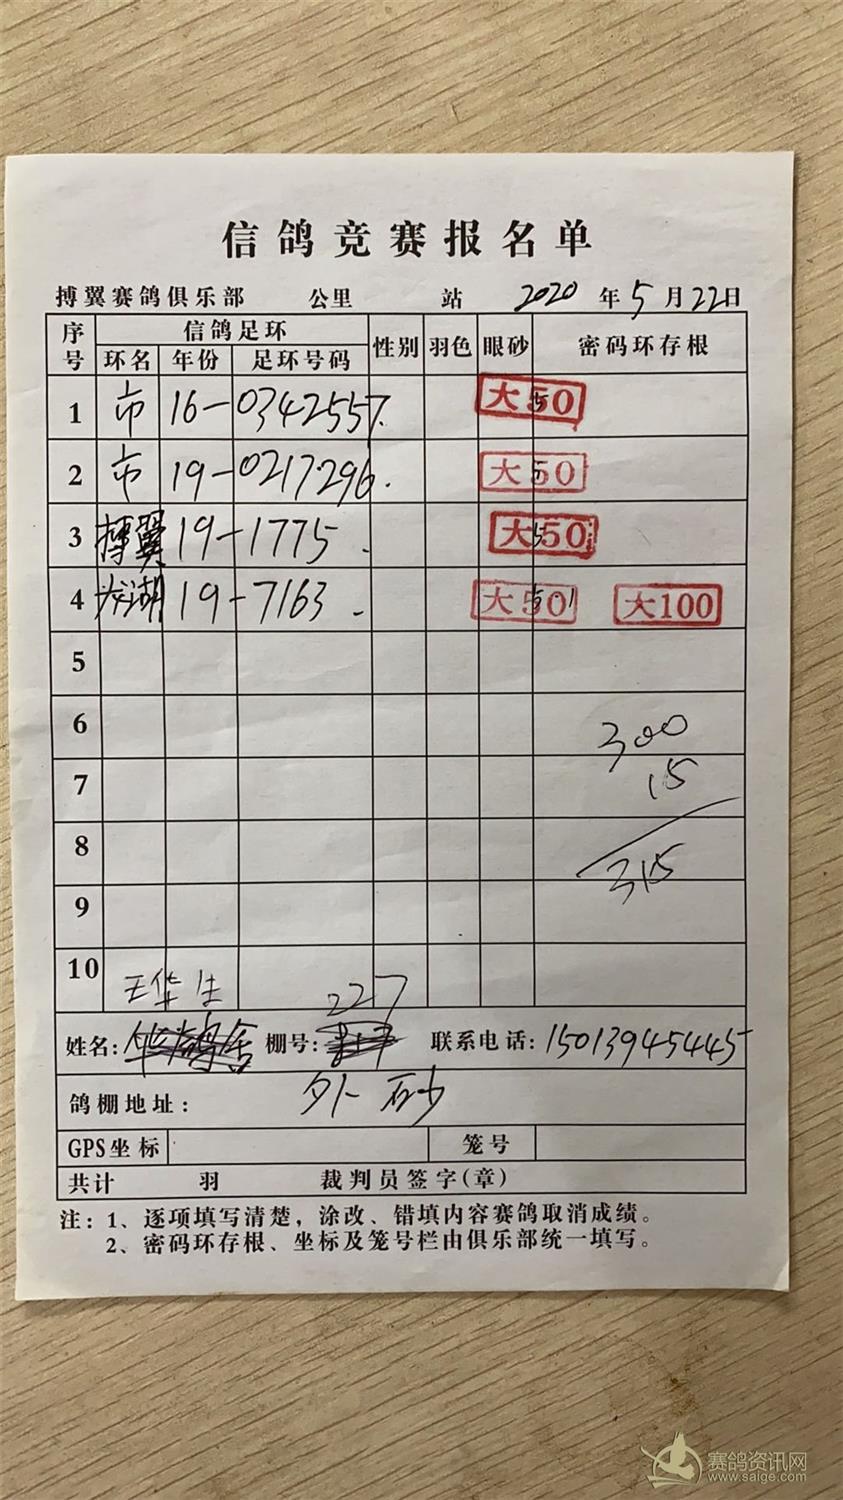 信鸽竞赛报名单
搏翼赛鸽俱乐部 公里 站 2020 年 5 月 22 日
序号 信鸽足环 性别 羽色 眼砂 密码环存根
环名 年份 足环号码
1 市 16-0342557. 大50
2 市 19-0217296. 大50
3 搏翼 19-1775. 大50
4 龙湖 19-7163. 大50 大100
5
6 300
7 15
8 315
9
10
王华生 227
姓名: 棚号: 联系电话: 15013945445
鸽棚地址: 外砂
GPS坐标 笼号
共计 羽 裁判员签字(章)
注:1、逐项填写清楚,涂改、错填内容赛鸽取消成绩。
2、密码环存根、坐标及笼号栏由俱乐部统一填写。
赛鸽资讯网
www.saige.com